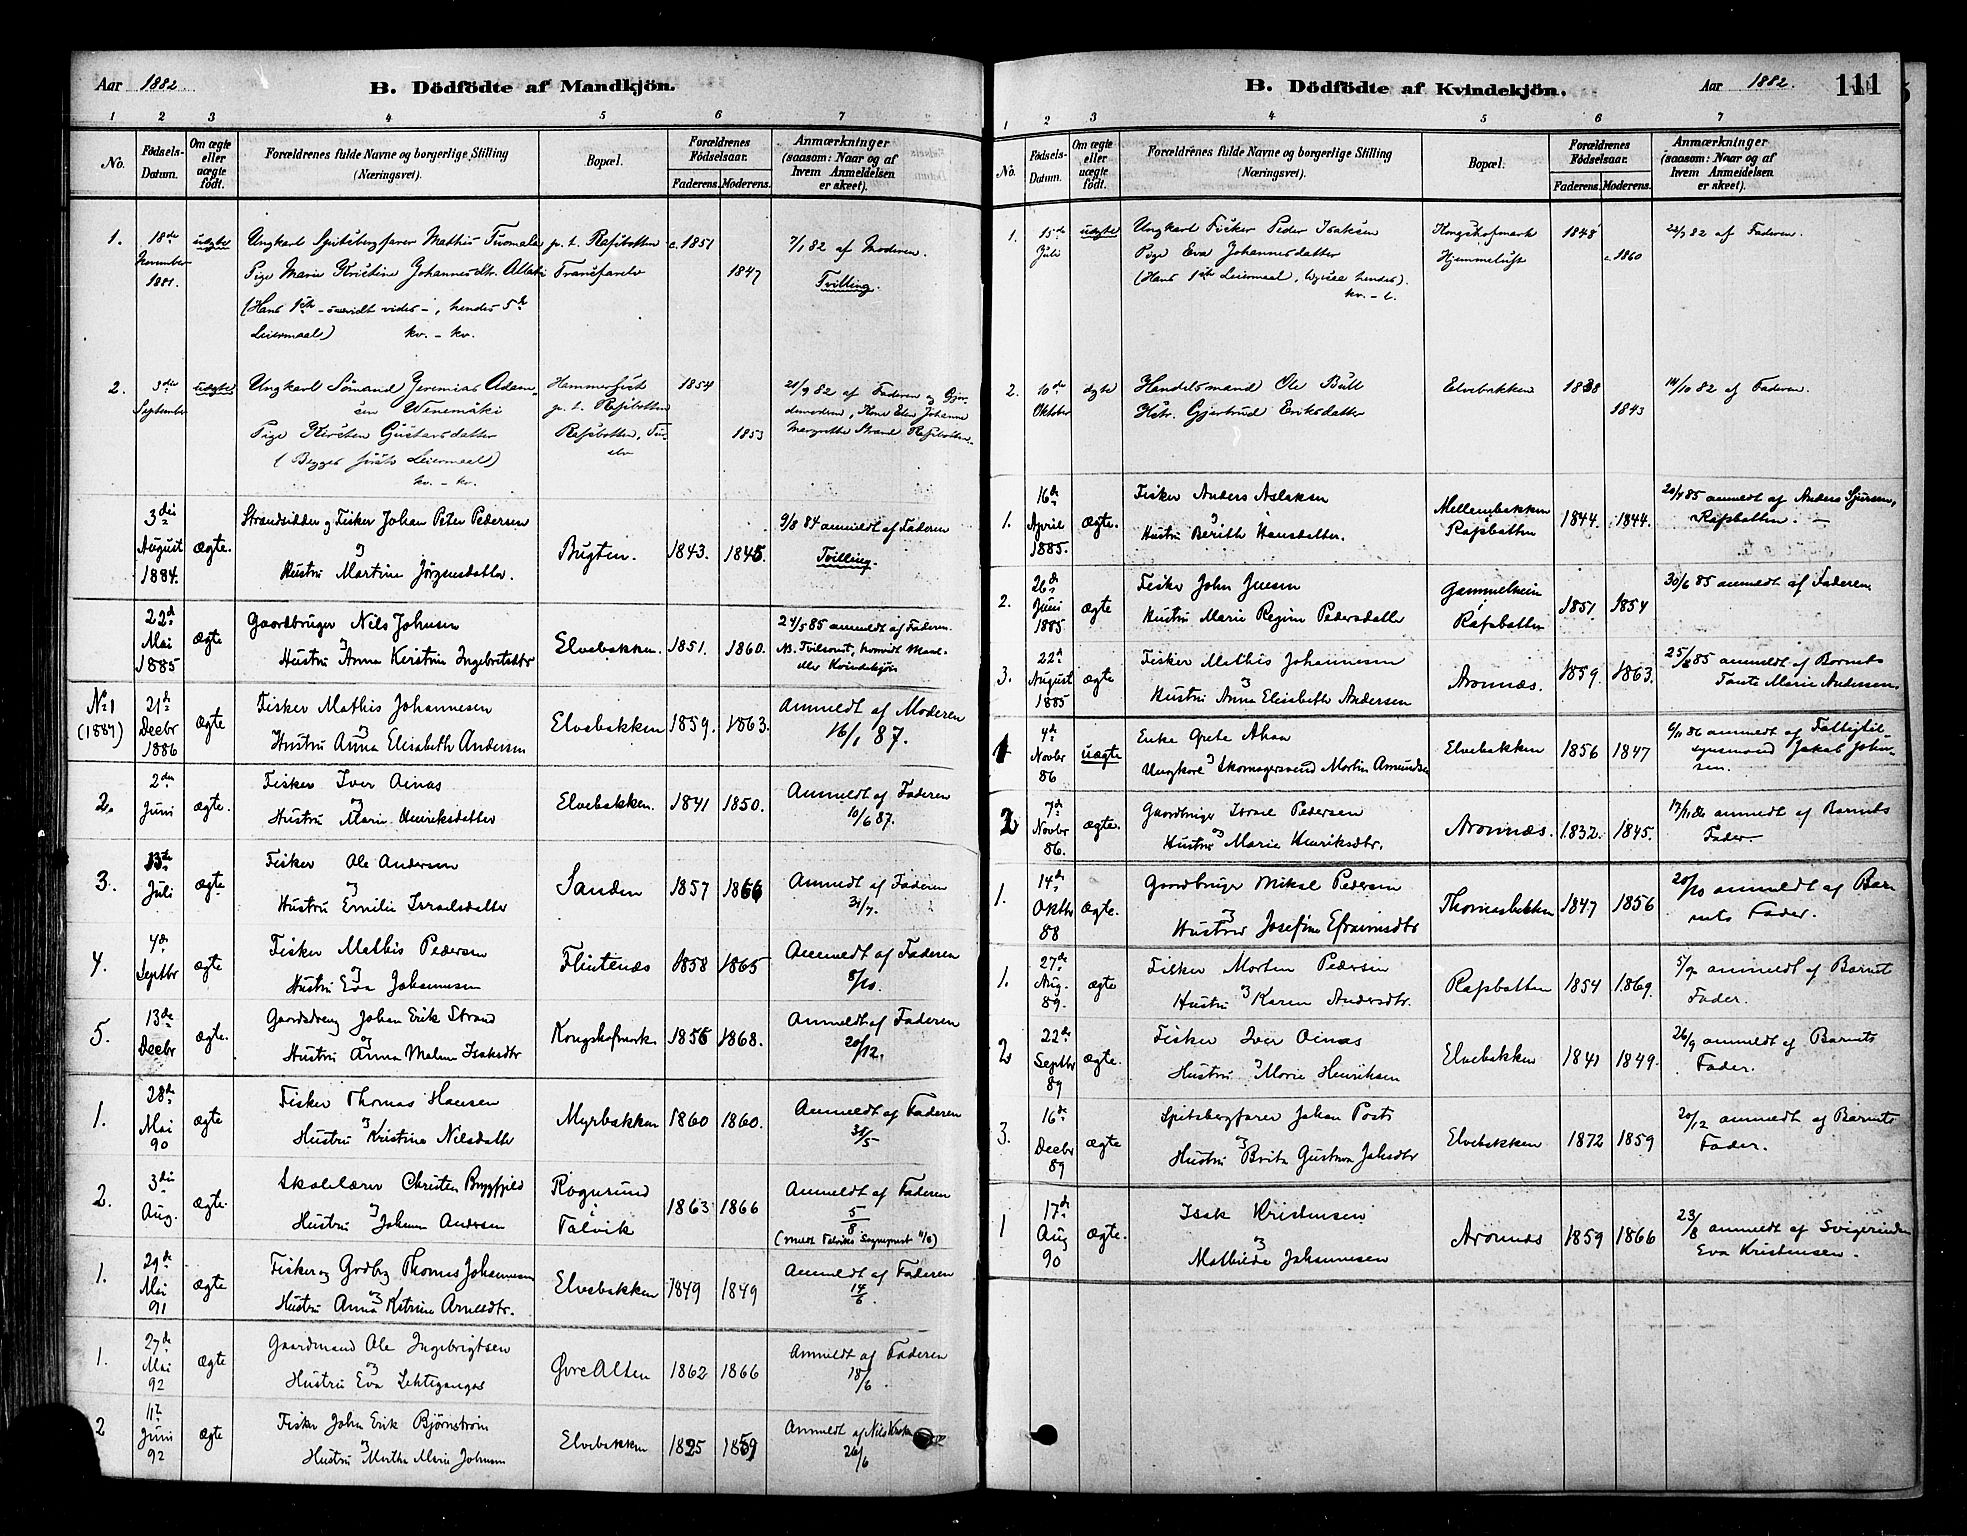 Aar 1882.
B. Dödfödte af Mandkjön.
1 2 3 4 5 6 7
No.
Födsels-Datum.
Om ægte eller uægte födt.
Forældrenes fulde Navne og borgerlige Stilling (Næringsvei).
Bopæl.
Forældrenes Födselsaar.
Faderens. Moderens.
Anmærkninger (saasom: Naar og af hvem Anmeldelsen er skeet).
1. 18de November 1881. uægte
Ungkarl Spitsbergfarer Mathis Tuomala p. t. Rafsbotten c. 1851
Pige Marie Kristine Johannesdtr. Transfarelv 1847
(Hans 1ste - saavidt vides -, hendes 5te
Leiermaal) kv. - kv.
7/1 82 af Moderen.
Tvilling.
2. 3die September uægte
Ungkarl Sömand Jeremias Adam-
sen Wenemäki
Pige Kirsten Gustavsdatter
(Begges förste Leiermaal)
kv. - kv.
Hammerfest
p. t. Rafsbotten
Rafsbotten,
1854
1853
21/9 82 af Faderen og Gjor-
demoderen, Kone Elen Johanne
Margrethe Strand Rafsbotten.
3die August 1884. ægte.
Strandsidder og Fisker Johan Peter Pedersen
Hustru Martine Jörgensdatter.
Bugten. 1843. 1845
9/8 84 anmeldt af Faderen
Tvilling.
22d Mai 1885 ægte
Gaardbruger Nils Johnsen
Hustru Anna Kerstine Ingebrigtsdtr
Elvebakken. 1851. 1860.
24/5 85 anmeldt af Faderen.
N. Tvilsomt, hvorvidt Mand-
eller Kvindekjön
No 1 (1887) 21de Decbr 1886 ægte
Fisker Mathis Johannesen
Hustru Anna Elisabeth Andersen
Elvebakken 1859. 1863.
Anmeldt af Moderen
16/1 87.
2. 2den Juni ægte.
Fisker Iver Ainas
Hustru Marie Henriksdatter
Elvebakken. 1841 1850.
Anmeldt af Faderen
10/6 87.
3. 13de Juli ægte
Fisker Ole Andersen
Hustru Emilie Israelsdatter
Sanden 1857 1866
Anmeldt af Faderen
31/7.
4. 4de Septbr ægte
Fisker Mathis Pedersen
Hustru Eva Johannesen
Flintenæs 1858 1865
Anmeldt af Faderen
8/10.
5. 13de Decbr ægte.
Gaardsdreng Johan Erik Strand
Hustru Anna Malene Isaksdtr
Kongshofmark. 1855 1868.
Anmeldt af Faderen
20/12.
1. 28de Mai 90 ægte
Fisker Thomas Hansen
Hustru Kristine Nilsdatter
Myrbakken 1860 1860.
Anmeldt af Faderen
31/5
2. 3die Aug. ægte.
Skolelærer Christen Byggfjeld
Hustru Johanna Andersen
Rognsund i Talvik 1863 1866
Anmeldt af Faderen
5/8
(meldt Talviks Sogneprest 11/8)
1. 29de Mai 91 ægte
Fisker og Grdbg Thomas Johannesen
Hustru Anna Katrine Arnesdtr.
Elvebakken 1849 1849
Anmeldt af Faderen
14/6
1. 27de Mai 92 ægte
Gaardmand Ole Ingebrigtsen
Hustru Eva
Øvre Alten 1862 1866
Anmeldt af Faderen
18/6
2 11te Juni 92 ægte
Fisker John Erik Bjørnstrøm
Hustru Martha Marie Johnsen
Elvebakken
Anmeldt af Nils
26/6
B. Dödfödte af Kvindekjön.
Aar 1882.
111
1 2 3 4 5 6 7
No.
Födsels-Datum.
Om ægte eller uægte födt.
Forældrenes fulde Navne og borgerlige Stilling (Næringsvei).
Bopæl.
Forældrenes Födselsaar.
Faderens. Moderens.
Anmærkninger (saasom: Naar og af hvem Anmeldelsen er skeet).
1. 15de Juli uægte
Ungkarl Fisker Peder Isaksen
Pige Eva Johannesdatter
(Hans 1ste Leiermaal, ligesaa hendes).
kv. - l.
Kongshofmark 1848
Hjemmeluft c. 1860
22/7 82 af Faderen.
2. 10de Oktober ægte
Handelsmand Ole Bull
Hstr. Gjertrud Eriksdatter
Elvebakken 1838
1843
14/10 82 af Faderen.
1. 16de April 1885. ægte.
Fisker Anders Aslaksen
Hustru Berith Hansdatter.
Mellembakken
Rafsbotten 1844. 1844.
20/4 85 anmeldt af Anders Sjursen,
Rafsbotten. -
2. 26de Juni 1885 ægte
Fisker John Jensen
Hustru Marie Regine Pedersdatter
Gammelheim
Rafsbotten 1851. 1854
30/6 85 anmeldt af Faderen
3. 22d August 1885 ægte
Fisker Mathis Johannesen
Hustru Anna Elisabeth Andersen
Aronnæs. 1859. 1863.
25/8 85 anmeldt af Barnets
Tante Marie Andersen.
1 4de Novbr 86 uægte
Enke Grete Ahaa
Ungkarl Skomagersvend Morten Amundsen
Elvebakken 1856 1847
6/11 86 anmeldt af Fattigtil-
synsmand Jakob John-
sen.
2 7de Novbr 86. ægte.
Gaardbruger Israel Pedersen
Hustru Marie Henriksdtr.
Aronnæs. 1832. 1845.
17/11 86 anmeldt af Barnets
Fader.
1. 14de Oktbr 88 ægte.
Gaardbruger Mikal Pedersen
Hustru Josefine Efraimsdtr
Thomasbakken 1847 1856
20/10 anmeldt af Bar
nets Fader.
1. 27de Aug. 89. ægte
Fisker Morten Pedersen
Hustru Karen Andersdtr.
Rafsbotten 1854 1869.
5/9 anmeldt af Barnets
Fader.
2 22de Septbr 89 ægte.
Fisker Iver Ainas
Hustru Marie Henriksen
Elvebakken 1841 1849.
26/9 anmeldt af Barnets
Fader.
3. 16de Decbr 89 ægte
Spitsbergfarer Johan Posti
Hustru Brita Gustava Johsdtr
Elvebakken 1872 1859
20/12 anmeldt af Barnets
Fader.
1 17de Aug 90 ægte.
Isak Kristensen
Mathilde Johannesen
Aronnæs 1859 1866
23/8 anmeldt af Svigerinden
Eva Kristensen.